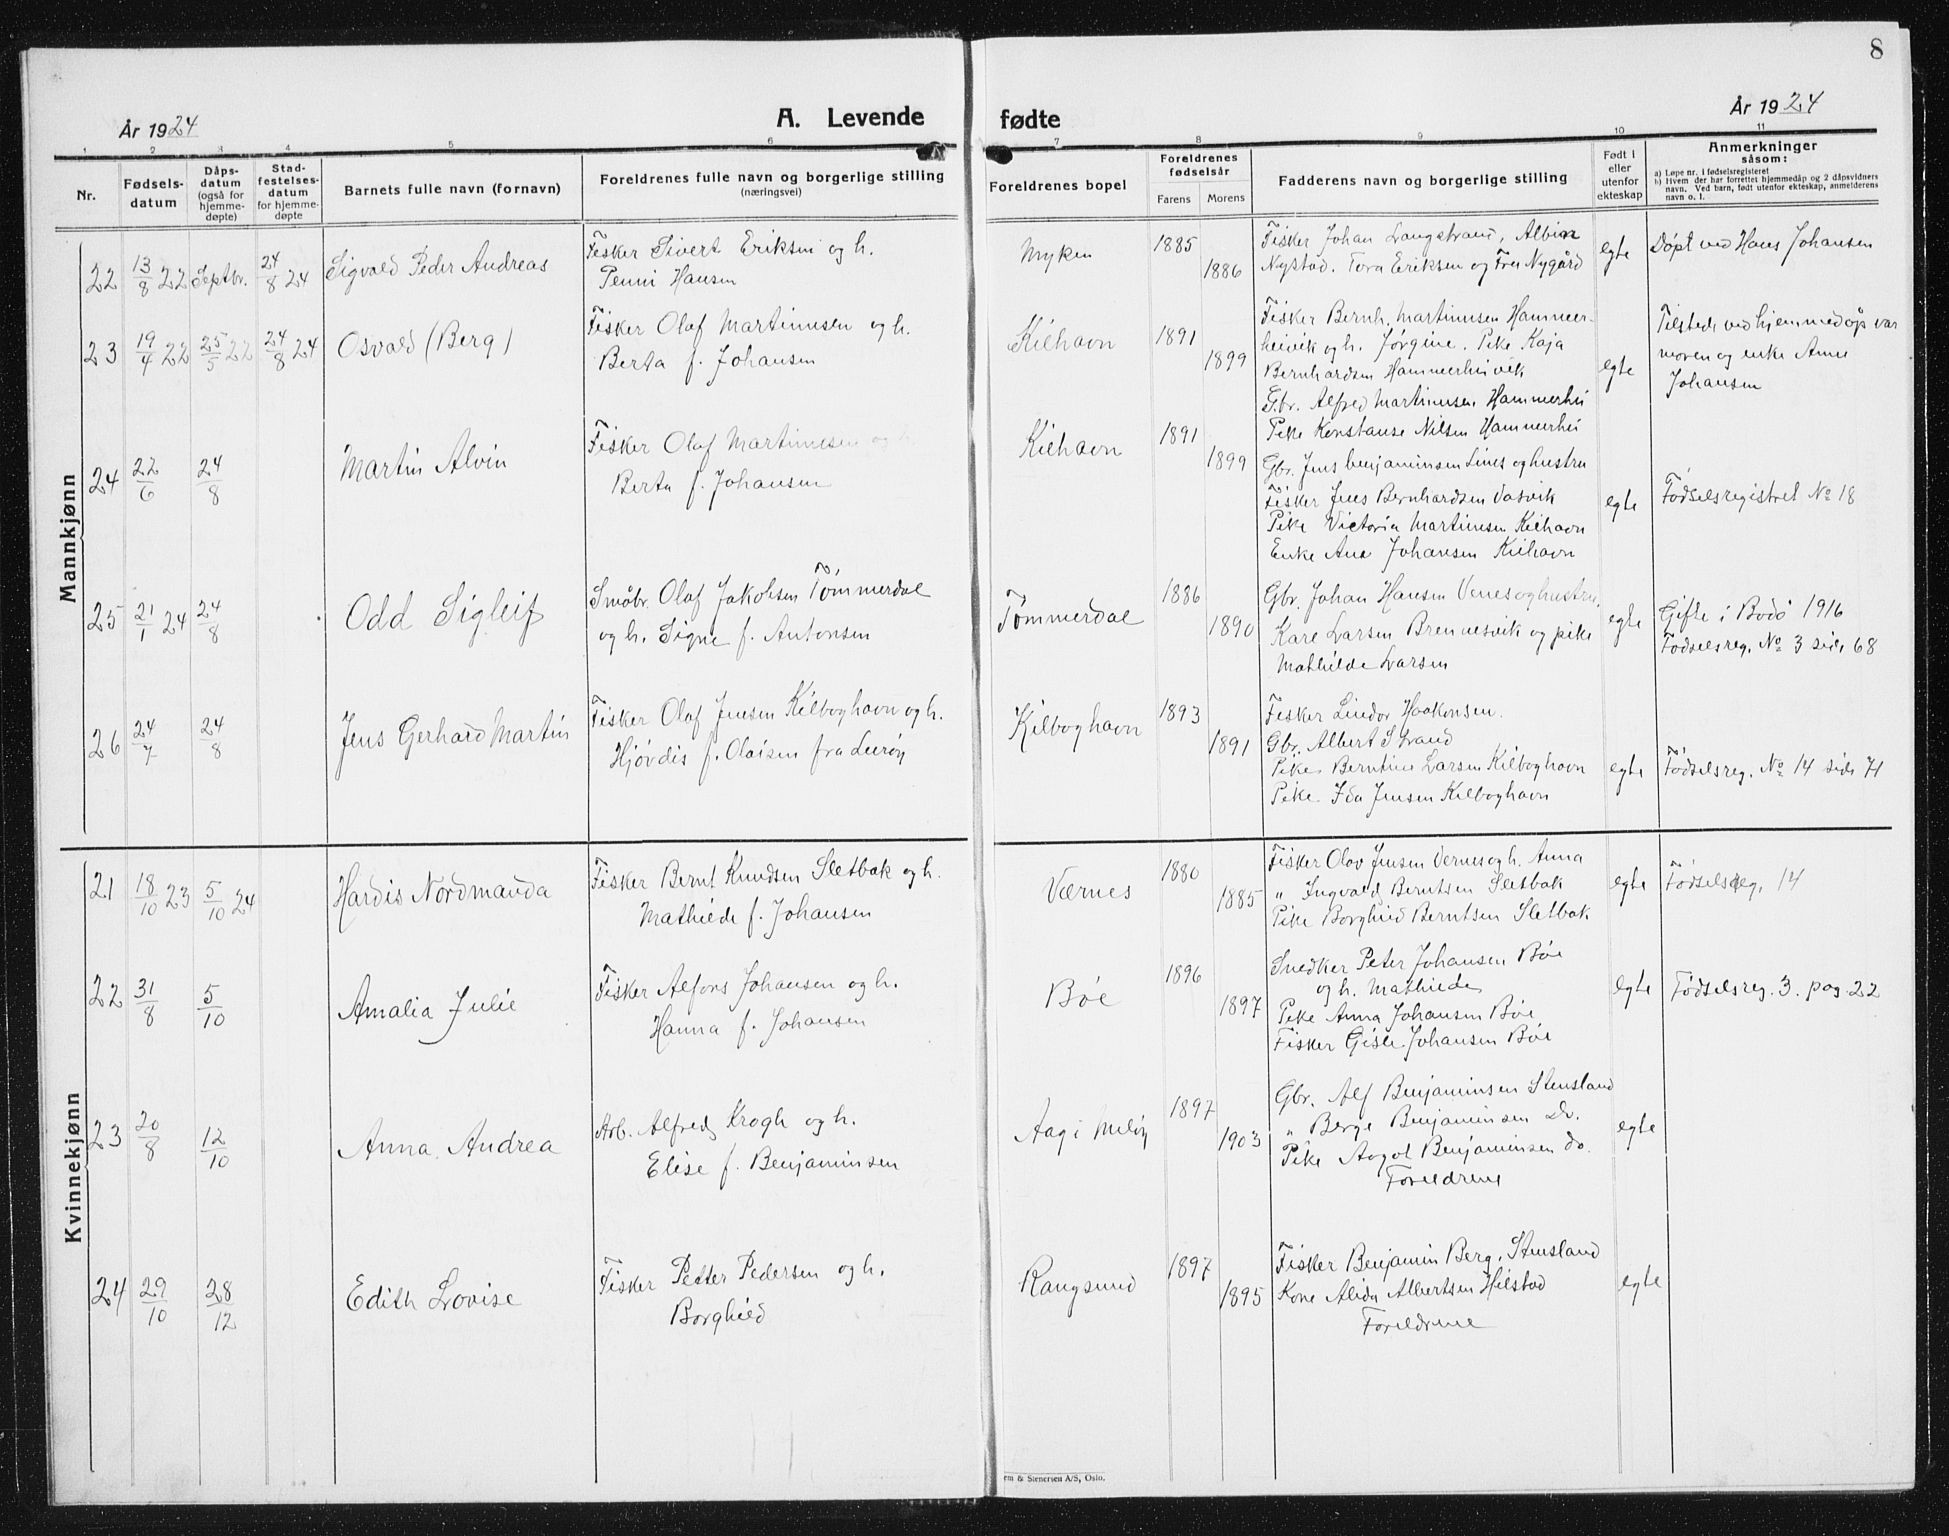 8
År 1924
A. Levende
fødte
År 1924
1 2 3 4 5 6 7 8 9 10 11
Nr.
Fødsels-
datum
Dåps-
datum
(også for
hjemme-
døpte)
Stad-
festelses-
datum
for hjemme-
døpte
Barnets fulle navn (fornavn)
Foreldrenes fulle navn og borgerlige stilling
(næringsvei)
Foreldrenes bopel
Foreldrenes
fødselsår
Farens Morens
Fadderens navn og borgerlige stilling
Født i
eller
utenfor
ekteskap
Anmerkninger
såsom:
a) Løpe nr. i fødselsregisteret
b) Hvem der har forrettet hjemmedåp og 2 dåpsvidners
navn. Ved barn, født utenfor ekteskap, anmelderens
navn o. l.
Mannkjønn
22 13/8 22 Septbr. 24/8 24 Sigvald Peder Andreas
Fisker Sivert Eriksen og h.
Penni Hansen
Myken 1885 1886
Fisker Johan Langstrand, Albin
Nystad. Tora Eriksen og Fru Nygård
egte
Døpt ved Hans Johansen
23 19/4 22 25/5 22 24/8 24 Osvald (Berg)
Fisker Olaf Martinusen og h.
Berta f. Johansen
Kilhavn 1891 1899
Fisker Bernh. Martinusen Hammer-
heivik og h. Jørgine. Pike Kaja
Bernhardsen Hammerheivik
Gbr. Alfred Martinusen Hammerhei
egte
Tilstede ved hjemmedåp var
moren og enke Anne
Johansen
24 22/6 24/8 Martin Alvin
Fisker Olaf Martinusen og h
Berta f. Johansen
Kilhavn 1891 1899
Pike Konstanse Nilsen Hammerhei
Gbr. Jens benjaminsen Lines og hustru
Fisker Jens Bernhardsen Vasvik
Pike Victoria Martinusen Kilhavn
Enke Ana Johansen Kilhavn
egte
Fødselsregistret No 18
25 21/1 24 24/8 Odd Sigleif
Småbr. Olaf Jakobsen Tømmerdal
og h. Signe f. Antonsen
Tømmerdal 1886 1890
Gbr. Johan Hansen Venes og hustru.
Kare Larsen Brennesvik og pike
Mathilde Larsen
egte
Gifte i Bodø 1916
Fødselsreg. No 3 side 68
26 24/7 24/8 Jens Gerhard Martin
Fisker Olaf Jensen Kilboghavn og h.
Hjørdis f. Olaisen fra Lurøy
Kilboghavn 1893 1891
Fisker Lindor Haakensen.
Gbr. Albert Strand
Pike Berntine Larsen Kilboghavn
Pike Ida Jensen Kilboghavn
egte
Fødselsreg. No 14 side 71
Kvinnekjønn
21 18/10 23 5/10 24 Hardis Nordmanda
Fisker Bernt Knudsen Sletbak og h.
Mathilde f. Johansen
Værnes 1880 1885
Fisker Olav Jensen Vernes og h. Anna
" Ingvald Berntsen Sletbak
Pike Borghild Berntsen Sletbak
egte
Fødselsreg. 14
22 31/8 5/10 Amalia Julie
Fisker Alfons Johansen og h.
Hanna f. Johansen
Bøe 1896 1897
Snedker Peter Johansen Bøe
og h. Mathilde
Pike Anna Johansen Bøe
Fisker Gisle Johansen Bøe
egte
Fødselsreg. 3. pag. 22
23 20/8 12/10 Anna Andrea
Arb. Alfred Krogh og h.
Elise f. Benjaminsen
Aag i Meløy 1897 1903
Gbr. Alf Benjaminsen Stensland
" Berge Benjaminsen Do.
Pike Aagot Benjaminsen do.
Foreldrene
egte
24 29/10 28/12 Edith Lovise
Fisker Petter Pedersen og h.
Borghild
Rangsund 1897 1895
Fisker Benjamin Berg, Stensland
Kone Alida Albertsen Hilstad
Foreldrene
egte
& Stenersen A/S, Oslo.